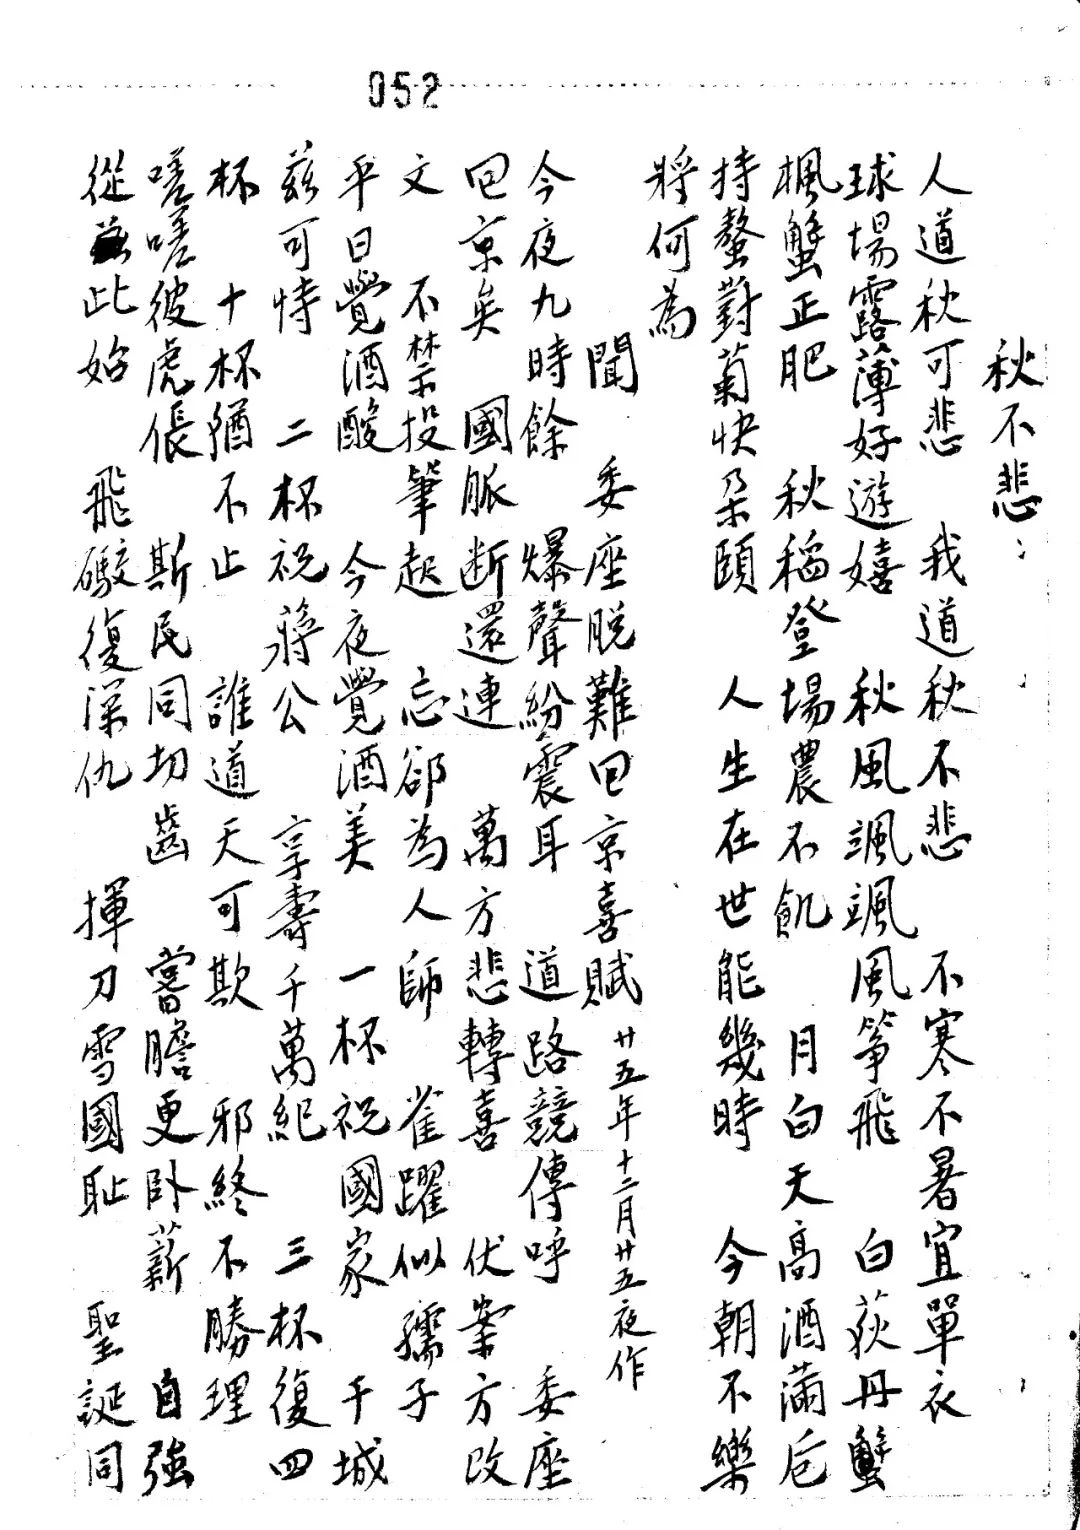 052
秋不悲
人道秋可悲 我道秋不悲 不寒不暑宜單衣
球場露薄好遊嬉 秋風颯颯風箏飛 白荻丹蟹
楓蟹正肥 秋稻登場農不飢 月白天高酒滿卮
持螯對菊快朵頤 人生在世能幾時 今朝不樂
將何為
聞 委座脱難囘京喜賦 廿五年十二月廿五夜作
今夜九時餘 爆聲紛震耳 道路競傳呼 委座
囘京矣 國脈断還連 萬方悲轉喜 伏案方改
文 不禁投筆起 忘卻為人師 雀躍似孺子
平日覺酒酸 今夜覺酒美 一杯祝國家 干城
茲可恃 二杯祝蔣公 享壽千萬紀 三杯復四
杯 十杯猶不止 誰道天可欺 邪終不勝理
嗟嗟彼虎倀 斯民同切齒 嘗膽更卧薪 自強
從此始 飛礮復深仇 揮刀雪國恥 聖誕同